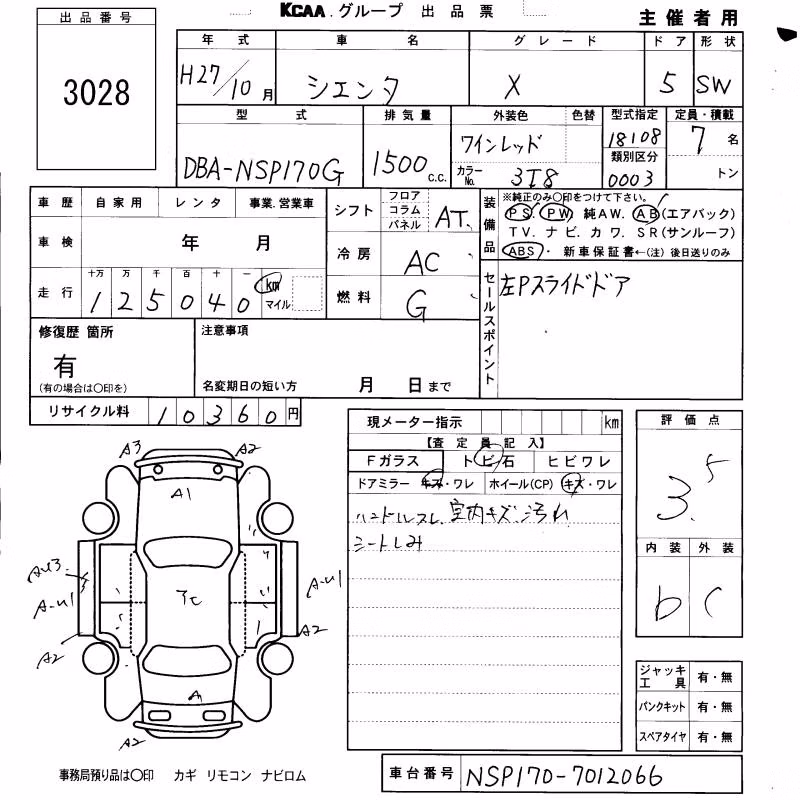 KCAA.グループ 出品票
主催者用
出品番号
3028
年式 車名 グレード ドア 形状
H27/10月 シエンタ X 5 SW
型式 排気量 外装色 色替 型式指定 定員・積載
DBA-NSP170G 1500 c.c. ワインレッド 18108 7名
カラーNo. 3T8 類別区分 0003 トン
車歴 自家用 レンタ 事業.営業車
シフト フロア コラム パネル AT
装備品 ※純正のみ○印をつけて下さい。
PS. PW 純AW. AB(エアバック)
TV. ナビ. カワ. SR(サンルーフ)
ABS・ 新車保証書←(注) 後日送りのみ
車検 年 月
冷房 AC
走行 十万 万 千 百 十 一
125040 km マイル
燃料 G
セールスポイント 左Pスライドドア
修復歴 箇所 注意事項
有
(有の場合は○印を) 名変期日の短い方 月 日まで
リサイクル料 10360円
現メーター指示 km
【査定員記入】
Fガラス トビ石 ヒビワレ
ドアミラー キズ・ワレ ホイール(CP) キズ・ワレ
ハンドルスレ. 室内キズ 汚れ
シートしみ
評価点
3.5
内装 外装
b C
A3 A2
A1
AU3
A-U1 A-U1
A2 A2
A
A2
ジャッキ工具 有・無
パンクキット 有・無
スペアタイヤ 有・無
事務局預り品は○印 カギ リモコン ナビロム
車台番号 NSP170-7012066